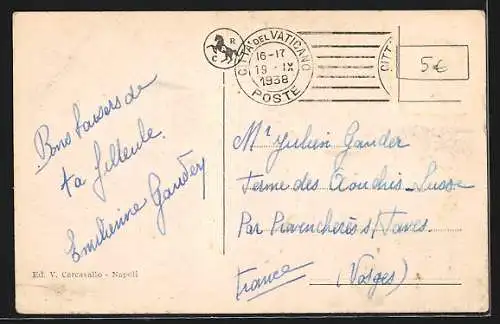 C R
CITTÀ DEL VATICANO
16-17
19 - IX
1938
POSTE
CITTÀ
5€
Bons baisers de
ta filleule
Emilienne Gander
Mr Julien Gander
Ferme des
Par Provenchères s/ Faves
(Vosges)
France
Ed. V. Carcavallo - Napoli